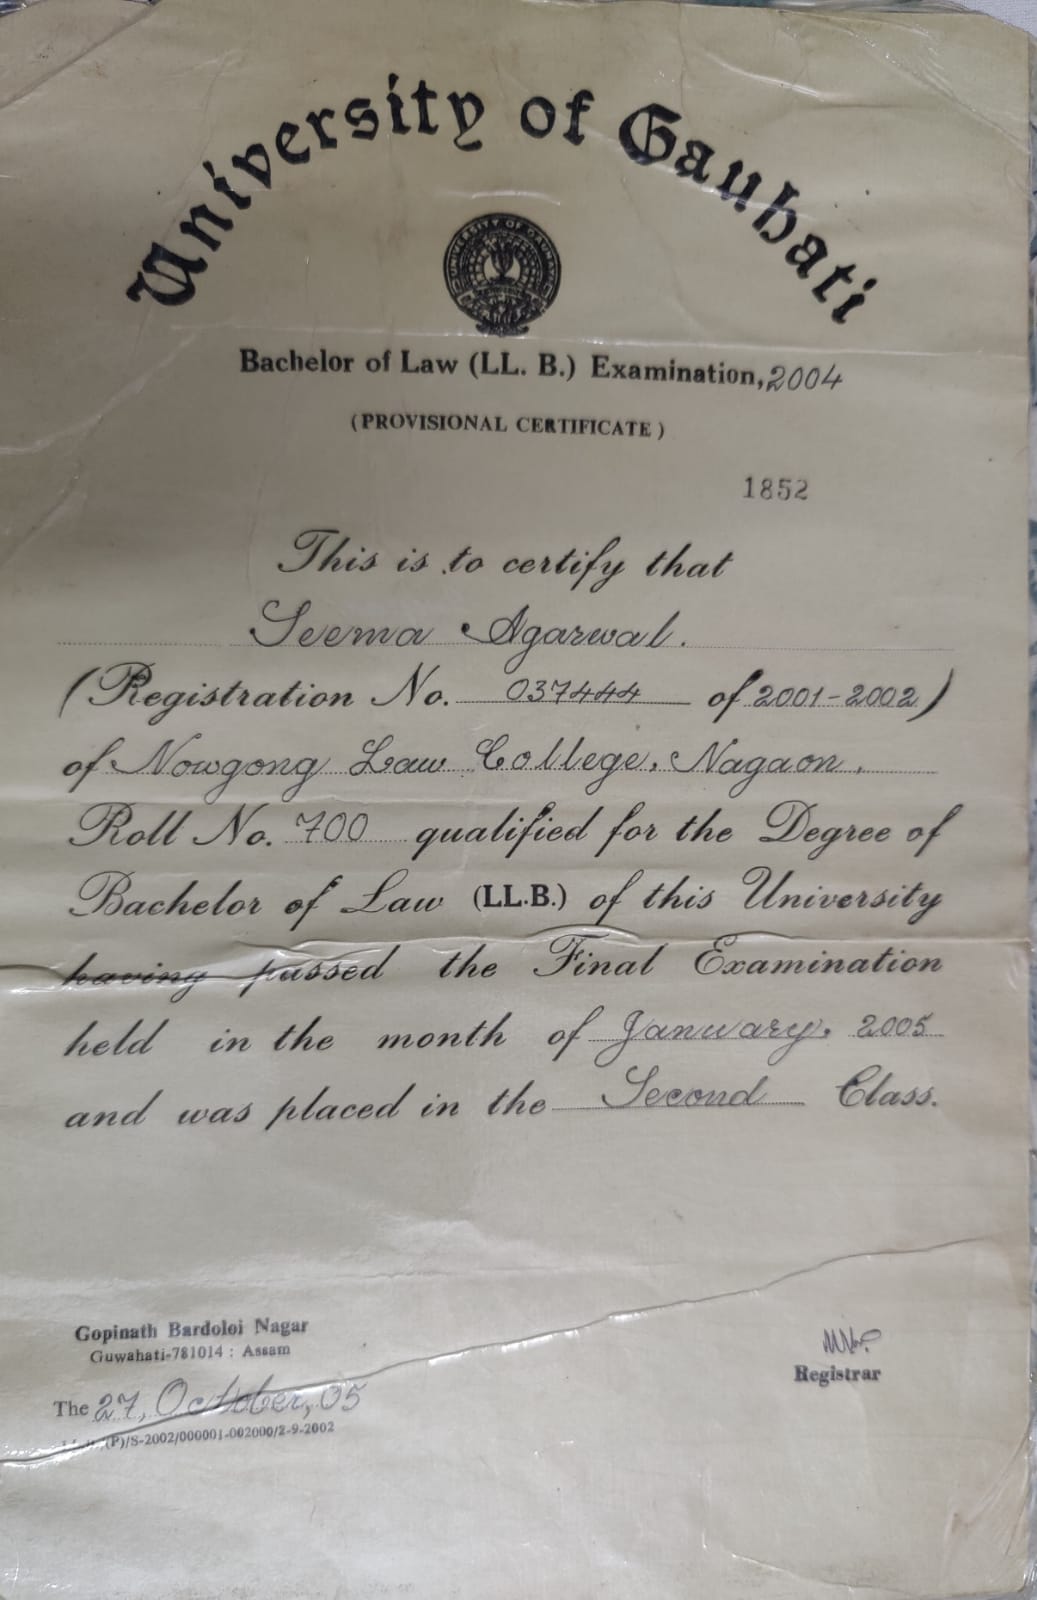 University of Gauhati
UNIVERSITY OF GAUHATI
Bachelor of Law (LL. B.) Examination, 2004
(PROVISIONAL CERTIFICATE)
1852
This is to certify that
Seema Agarwal.
(Registration No. 037444 of 2001-2002)
of Nowgong Law College, Nagaon.
Roll No. 700 qualified for the Degree of
Bachelor of Law (LL.B.) of this University
having passed the Final Examination
held in the month of January, 2005
and was placed in the Second Class.
Gopinath Bardoloi Nagar
Guwahati-781014 : Assam
Registrar
The 27, October, 05
(P)/S-2002/000001-002000/2-9-2002